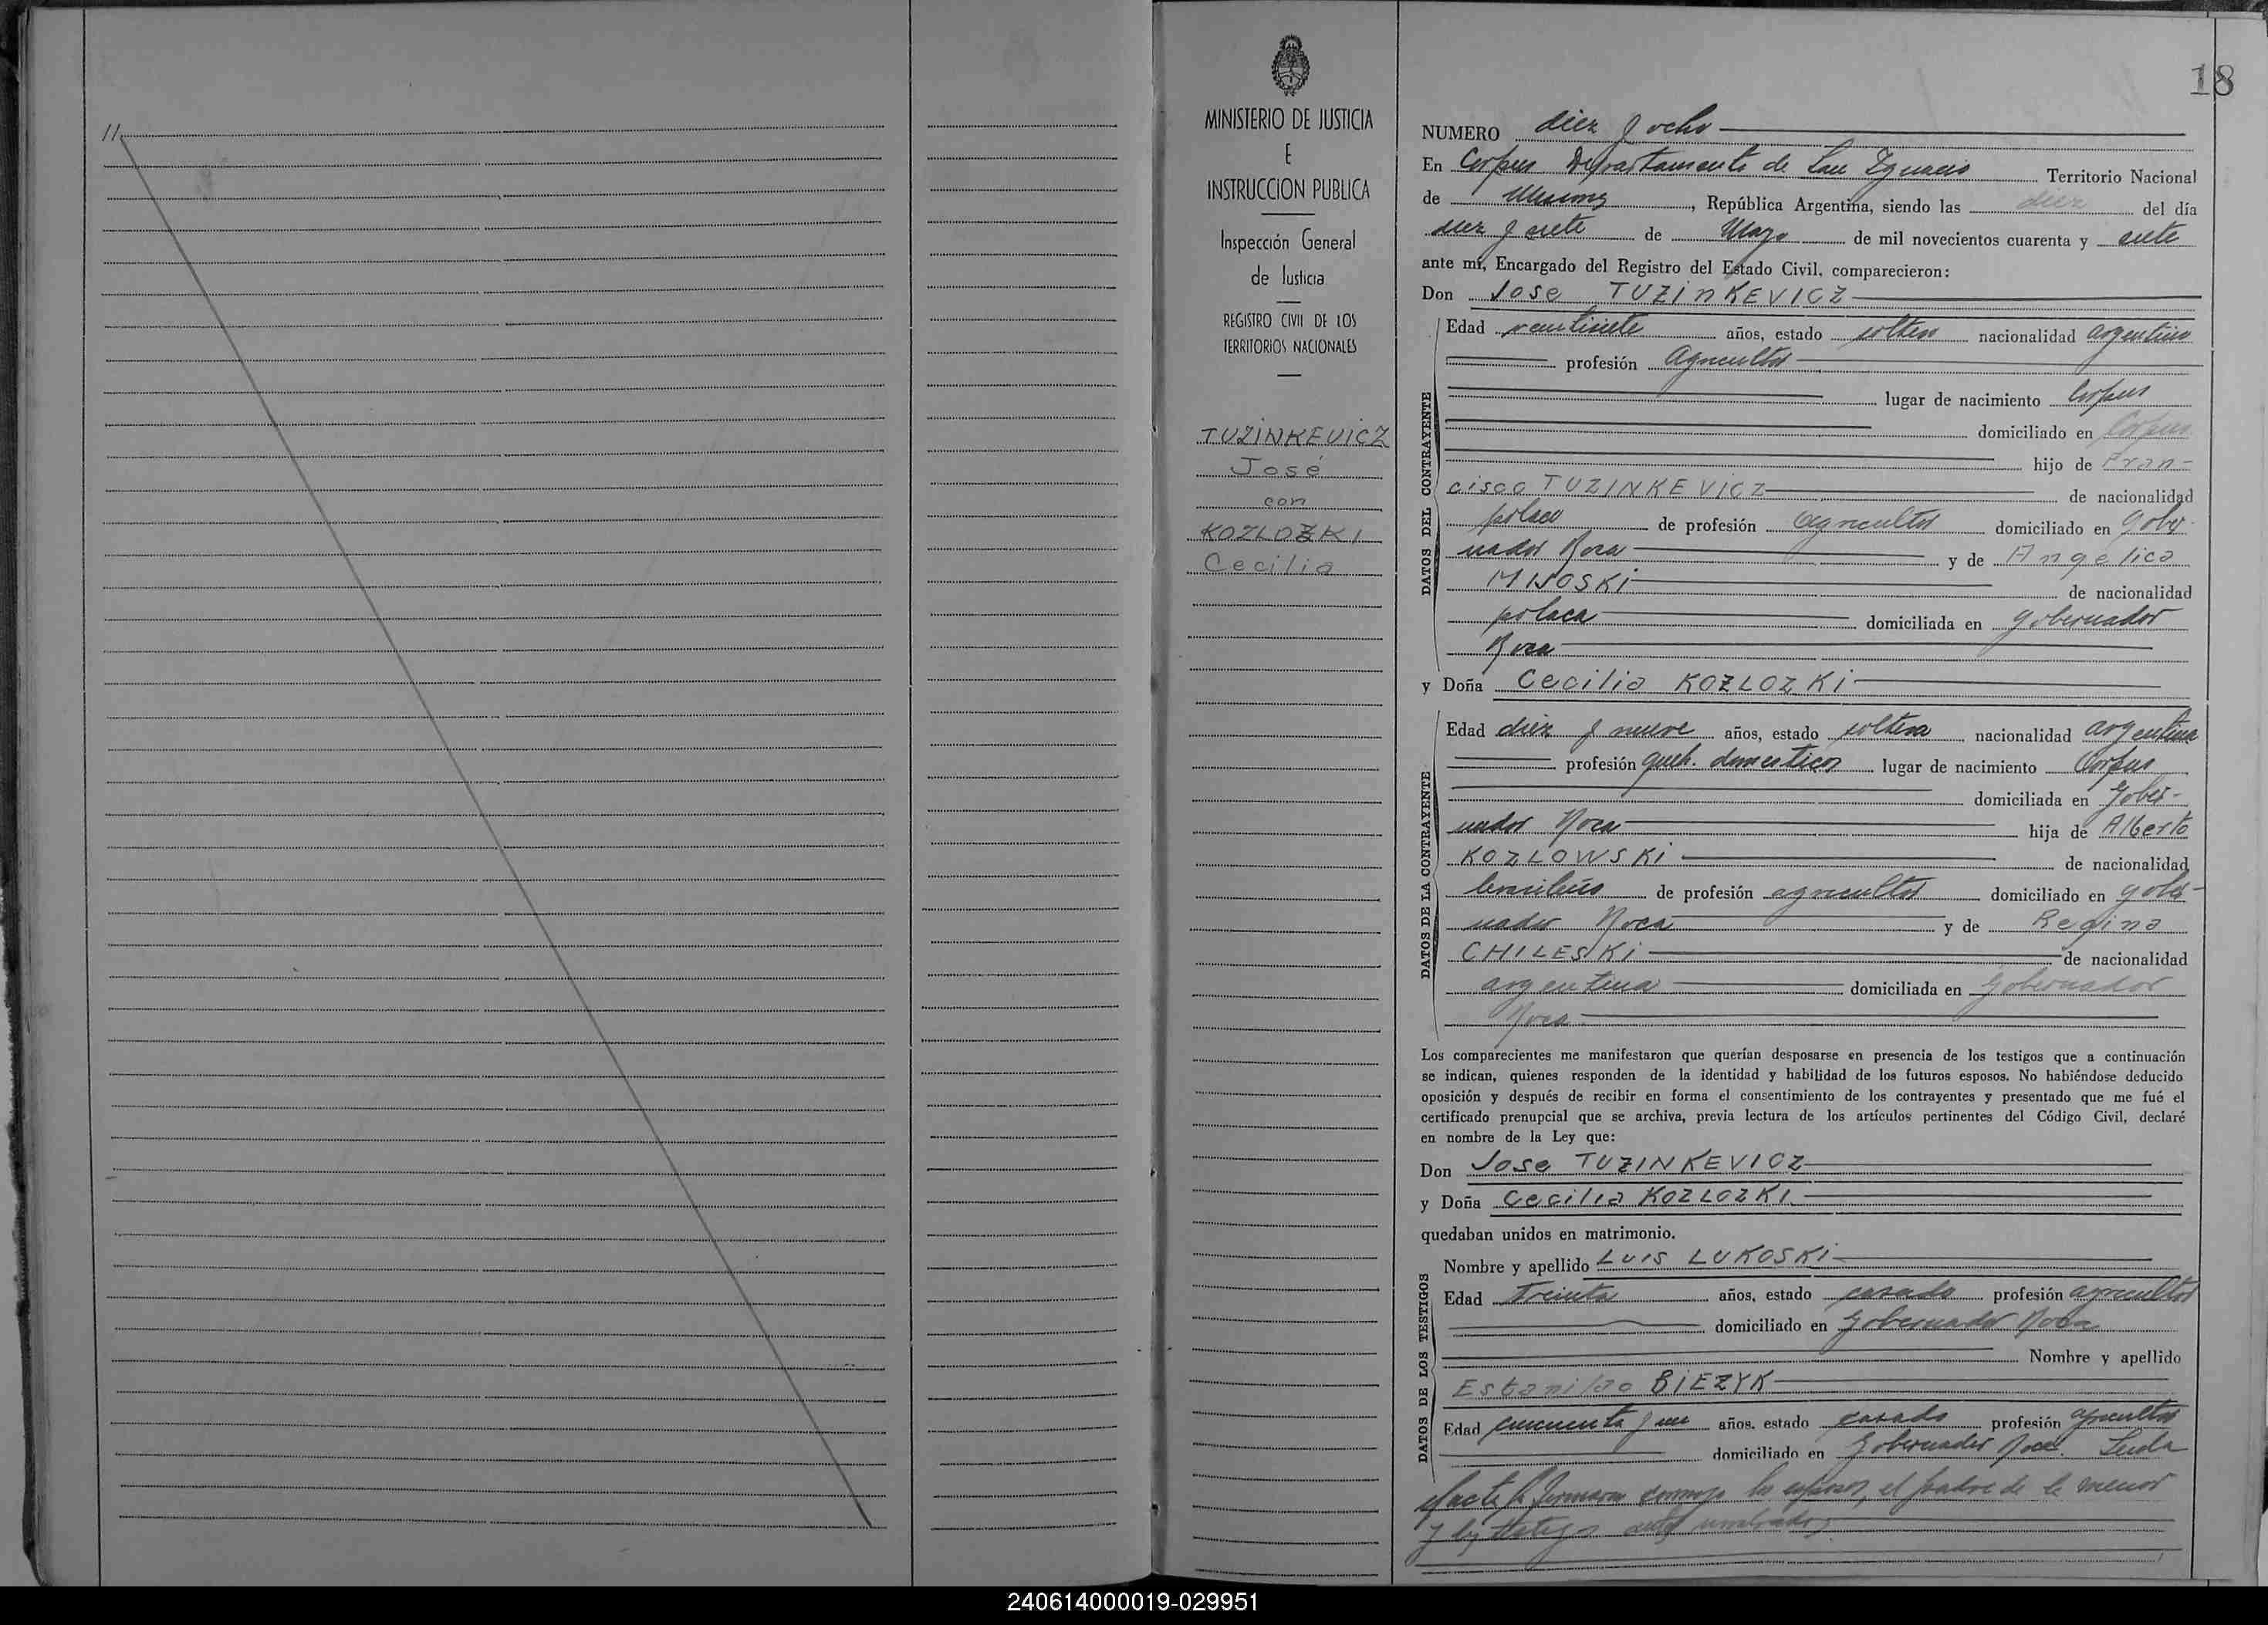 18
MINISTERIO DE JUSTICIA
E
INSTRUCCION PUBLICA
Inspección General
de Justicia
REGISTRO CIVIL DE LOS
TERRITORIOS NACIONALES
TUZINKEVICZ
José
con
KOZLOZKI
Cecilia
NUMERO diez y ocho
En Corpus Departamento de San Ignacio Territorio Nacional
de Misiones, República Argentina, siendo las diez del día
diez y siete de Mayo de mil novecientos cuarenta y siete
ante mí, Encargado del Registro del Estado Civil, comparecieron:
Don Jose TUZINKEVICZ
DATOS DEL CONTRAYENTE
Edad veintisiete años, estado soltero nacionalidad argentino
profesión Agricultor
lugar de nacimiento Corpus
domiciliado en Corpus
hijo de Fran-
cisco TUZINKEVICZ de nacionalidad
polaco de profesión agricultor domiciliado en Gober-
nador Roca y de Angélica
MINOSKI de nacionalidad
polaca domiciliada en Gobernador
Roca
y Doña Cecilia KOZLOZKI
DATOS DE LA CONTRAYENTE
Edad diez y nueve años, estado soltera nacionalidad argentina
profesión queh. domesticos lugar de nacimiento Corpus
domiciliada en Gober-
nador Roca hija de Alberto
KOZLOWSKI de nacionalidad
brasileño de profesión agricultor domiciliado en Gober-
nador Roca y de Regina
CHILESKI de nacionalidad
argentina domiciliada en Gobernador
Roca
Los comparecientes me manifestaron que querían desposarse en presencia de los testigos que a continuación
se indican, quienes responden de la identidad y habilidad de los futuros esposos. No habiéndose deducido
oposición y después de recibir en forma el consentimiento de los contrayentes y presentado que me fué el
certificado prenupcial que se archiva, previa lectura de los artículos pertinentes del Código Civil, declaré
en nombre de la Ley que:
Don Jose TUZINKEVICZ
y Doña Cecilia KOZLOZKI
quedaban unidos en matrimonio.
DATOS DE LOS TESTIGOS
Nombre y apellido LUIS LUKOSKI
Edad Treinta años, estado casado profesión agricultor
domiciliado en Gobernador Roca
Nombre y apellido
Estanislao BIEZYK
Edad cincuenta y un años, estado casado profesión agricultor
domiciliado en Gobernador Roca. Leida
el acta la firmaron conmigo los esposos, el padre de la menor
y los testigos antes nombrados
240614000019-029951